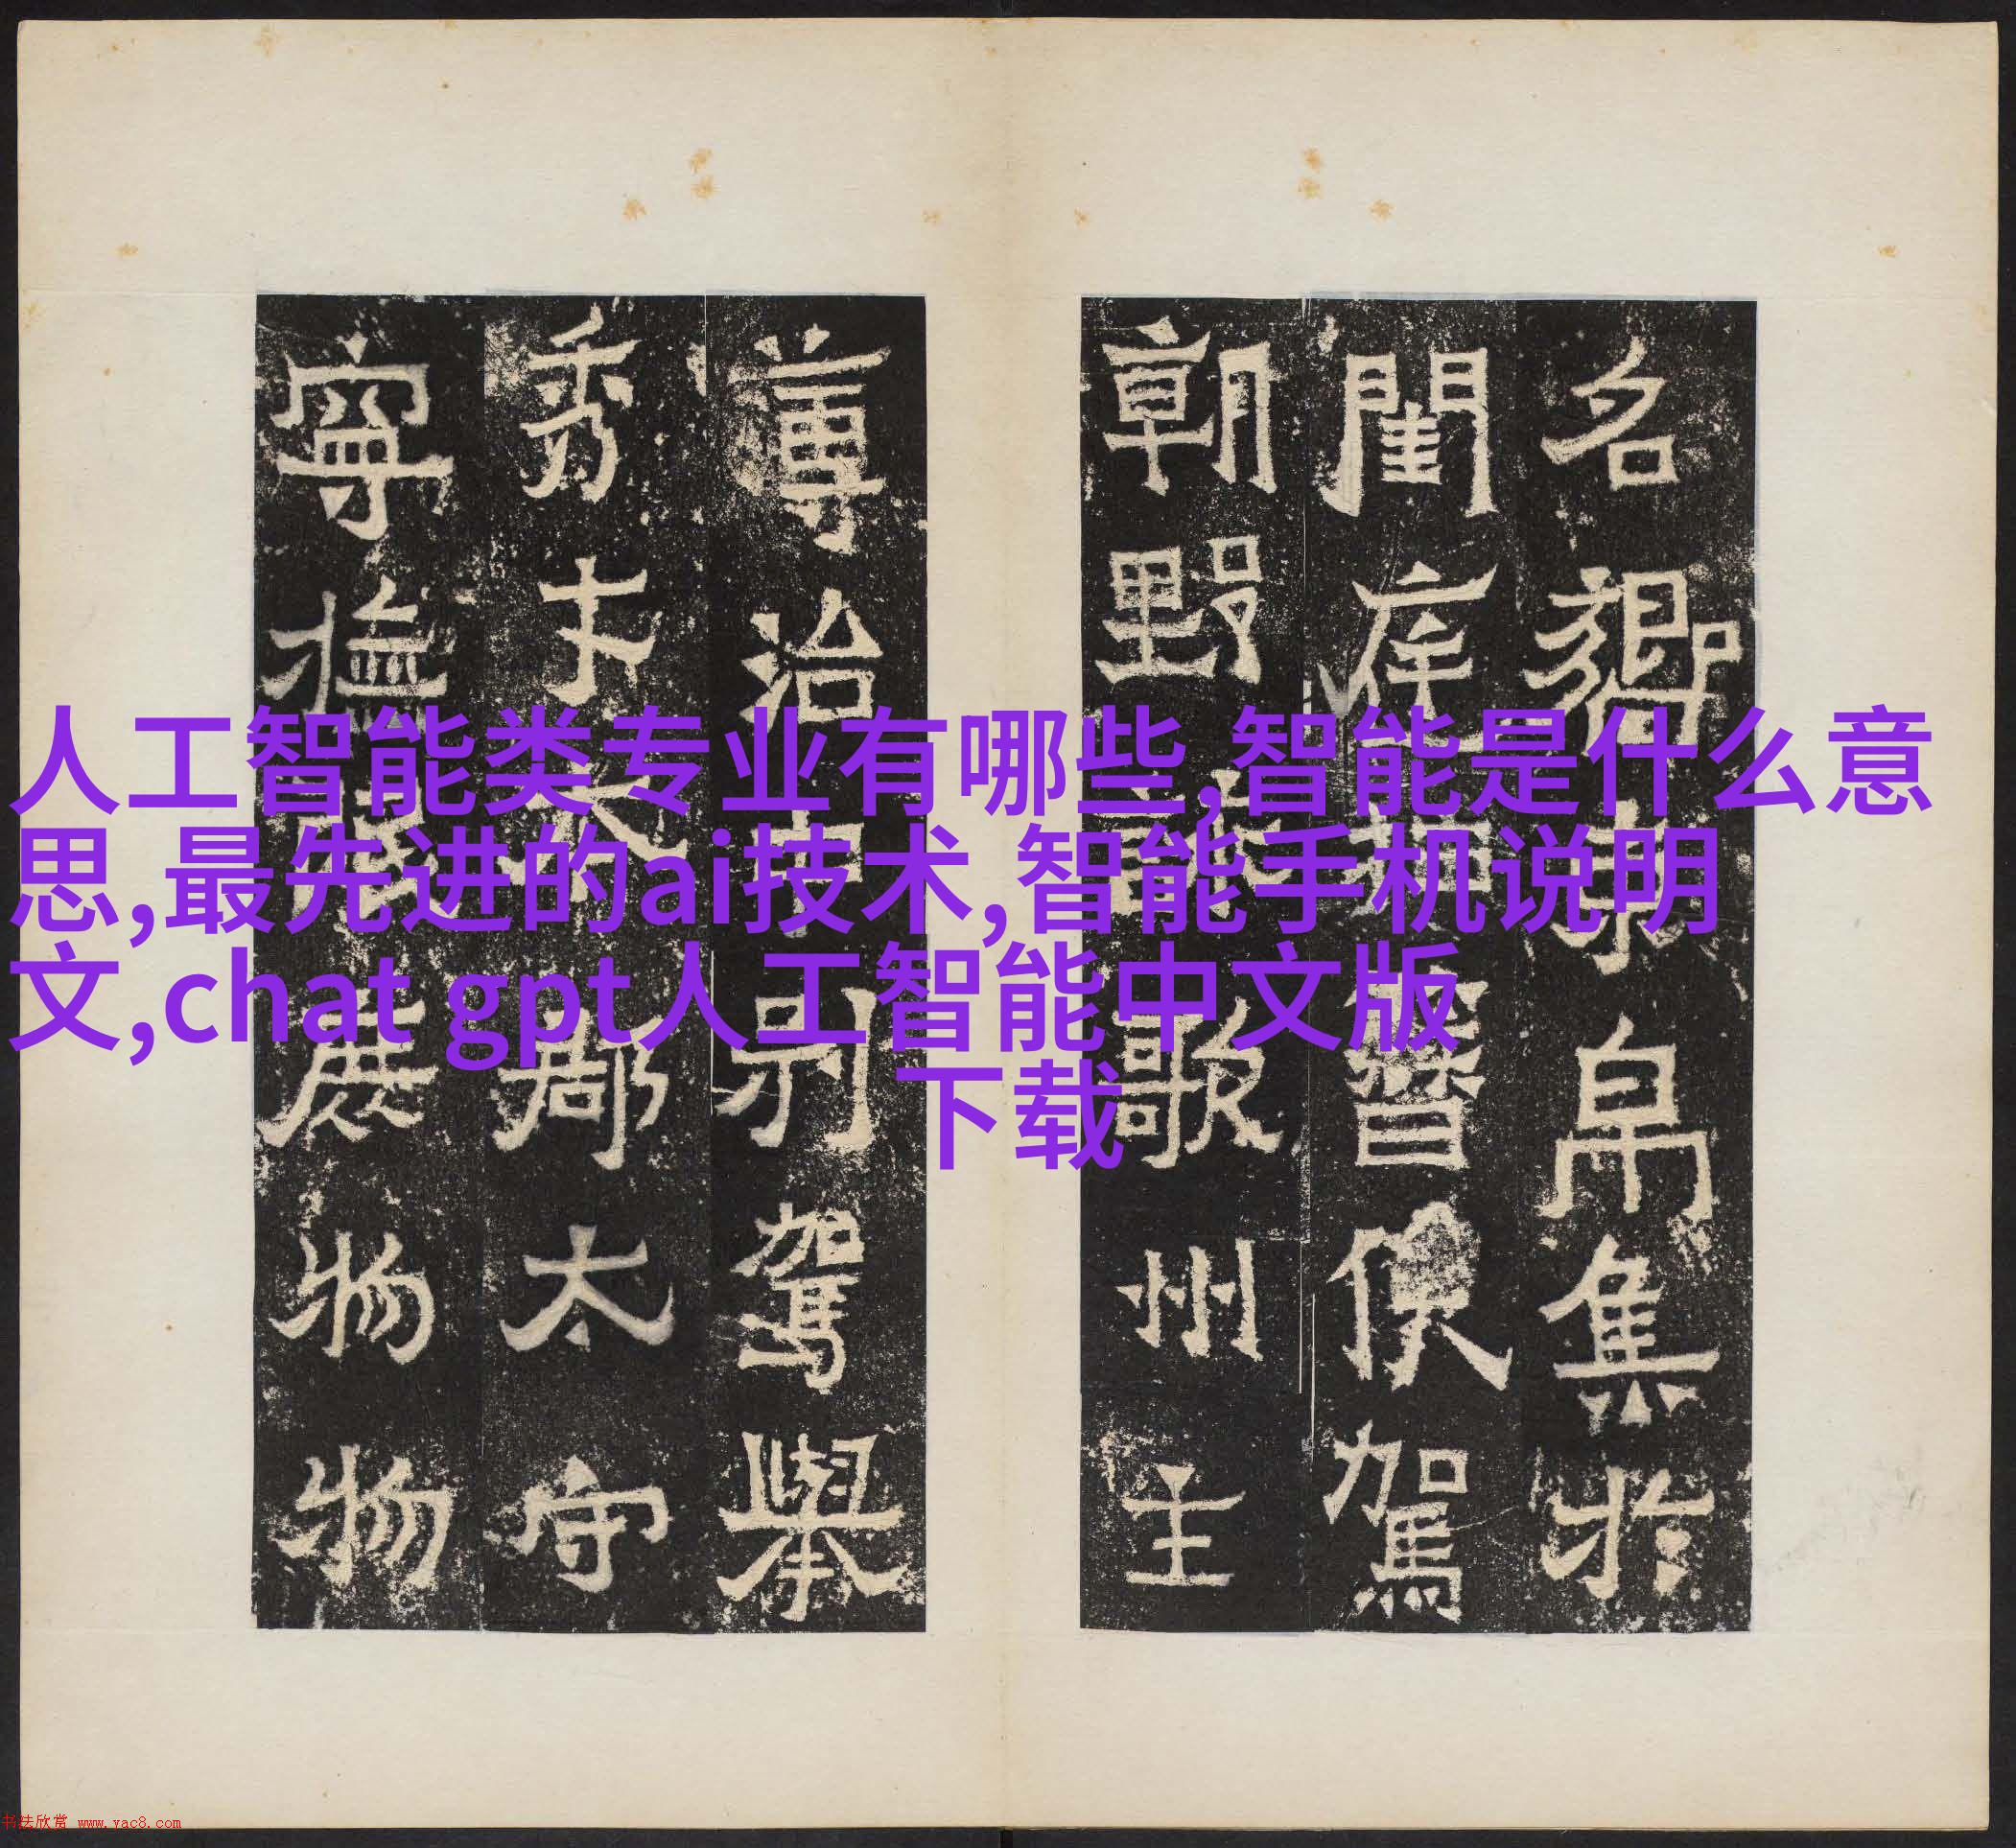 人工智能类专业有哪些,智能是什么意
思,最先进的ai技术,智能手机说明
文,chat gpt人工智能中文版
下载
名束帛集於
閨庭駕
朝野歌州主
治中別駕舉
秀才郡太守
寧撫庶物物
书法欣赏 www.yac8.com